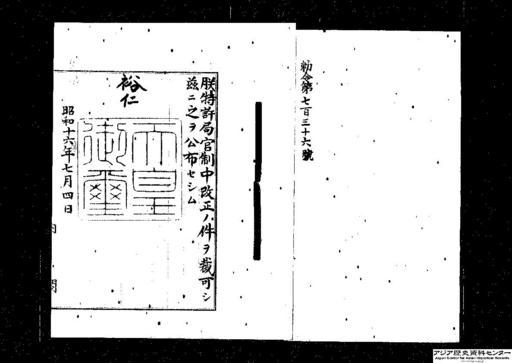 勅令第七百三十六號
朕特許局官制中改正ノ件ヲ裁可シ
茲ニ之ヲ公布セシム
裕仁
天皇
御璽
昭和十六年七月四日
内閣
アジア歴史資料センター
Japan Center for Asian Historical Records